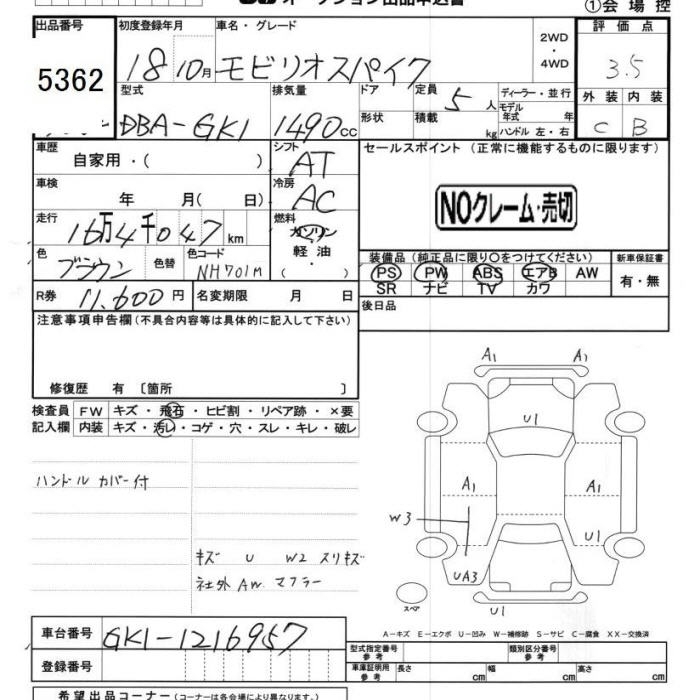 オークション出品申込書
①会場控
出品番号 初度登録年月 車名・グレード 2WD・4WD 評価点
5362 18 10月 モビリオスパイク 3.5
型式 排気量 ドア 定員 5人 ディーラー・並行 外装 内装
DBA-GK1 1490cc 形状 積載 kg モデル年式 年 ハンドル 左・右 C B
車歴 自家用・( ) シフト AT セールスポイント (正常に機能するものに限ります)
車検 年 月( 日) 冷房 AC
NOクレーム・売切
走行 16万4千047km 燃料 ガソリン 軽油・( )
色 ブラウン 色替 色コード NH701M
装備品 (純正品に限り〇をつけてください) 新車保証書
PS PW ABS エアB AW 有・無
SR ナビ TV カワ
R券 11,600円 名変期限 月 日
後日品
注意事項申告欄 (不具合内容等は具体的に記入して下さい)
修復歴 有 〔箇所 〕
検査員 FW キズ・飛石・ヒビ割・リペア跡・×要
記入欄 内装 キズ・汚レ・コゲ・穴・スレ・キレ・破レ
ハンドルカバー付
キズ U W2 スリキズ
社外AW マフラー
A1 A1
U1
A1 A1
W3 U1
UA3
スペア U1
A-キズ E-エクボ U-凹み W-補修跡 S-サビ C-腐食 XX-交換済
車台番号 GK1-1216957
登録番号
型式指定番号 参考 類別区分番号 参考
車庫証明用 参考 長さ cm 幅 cm 高さ cm
希望出品コーナー (コーナーは各会場により異なります。)